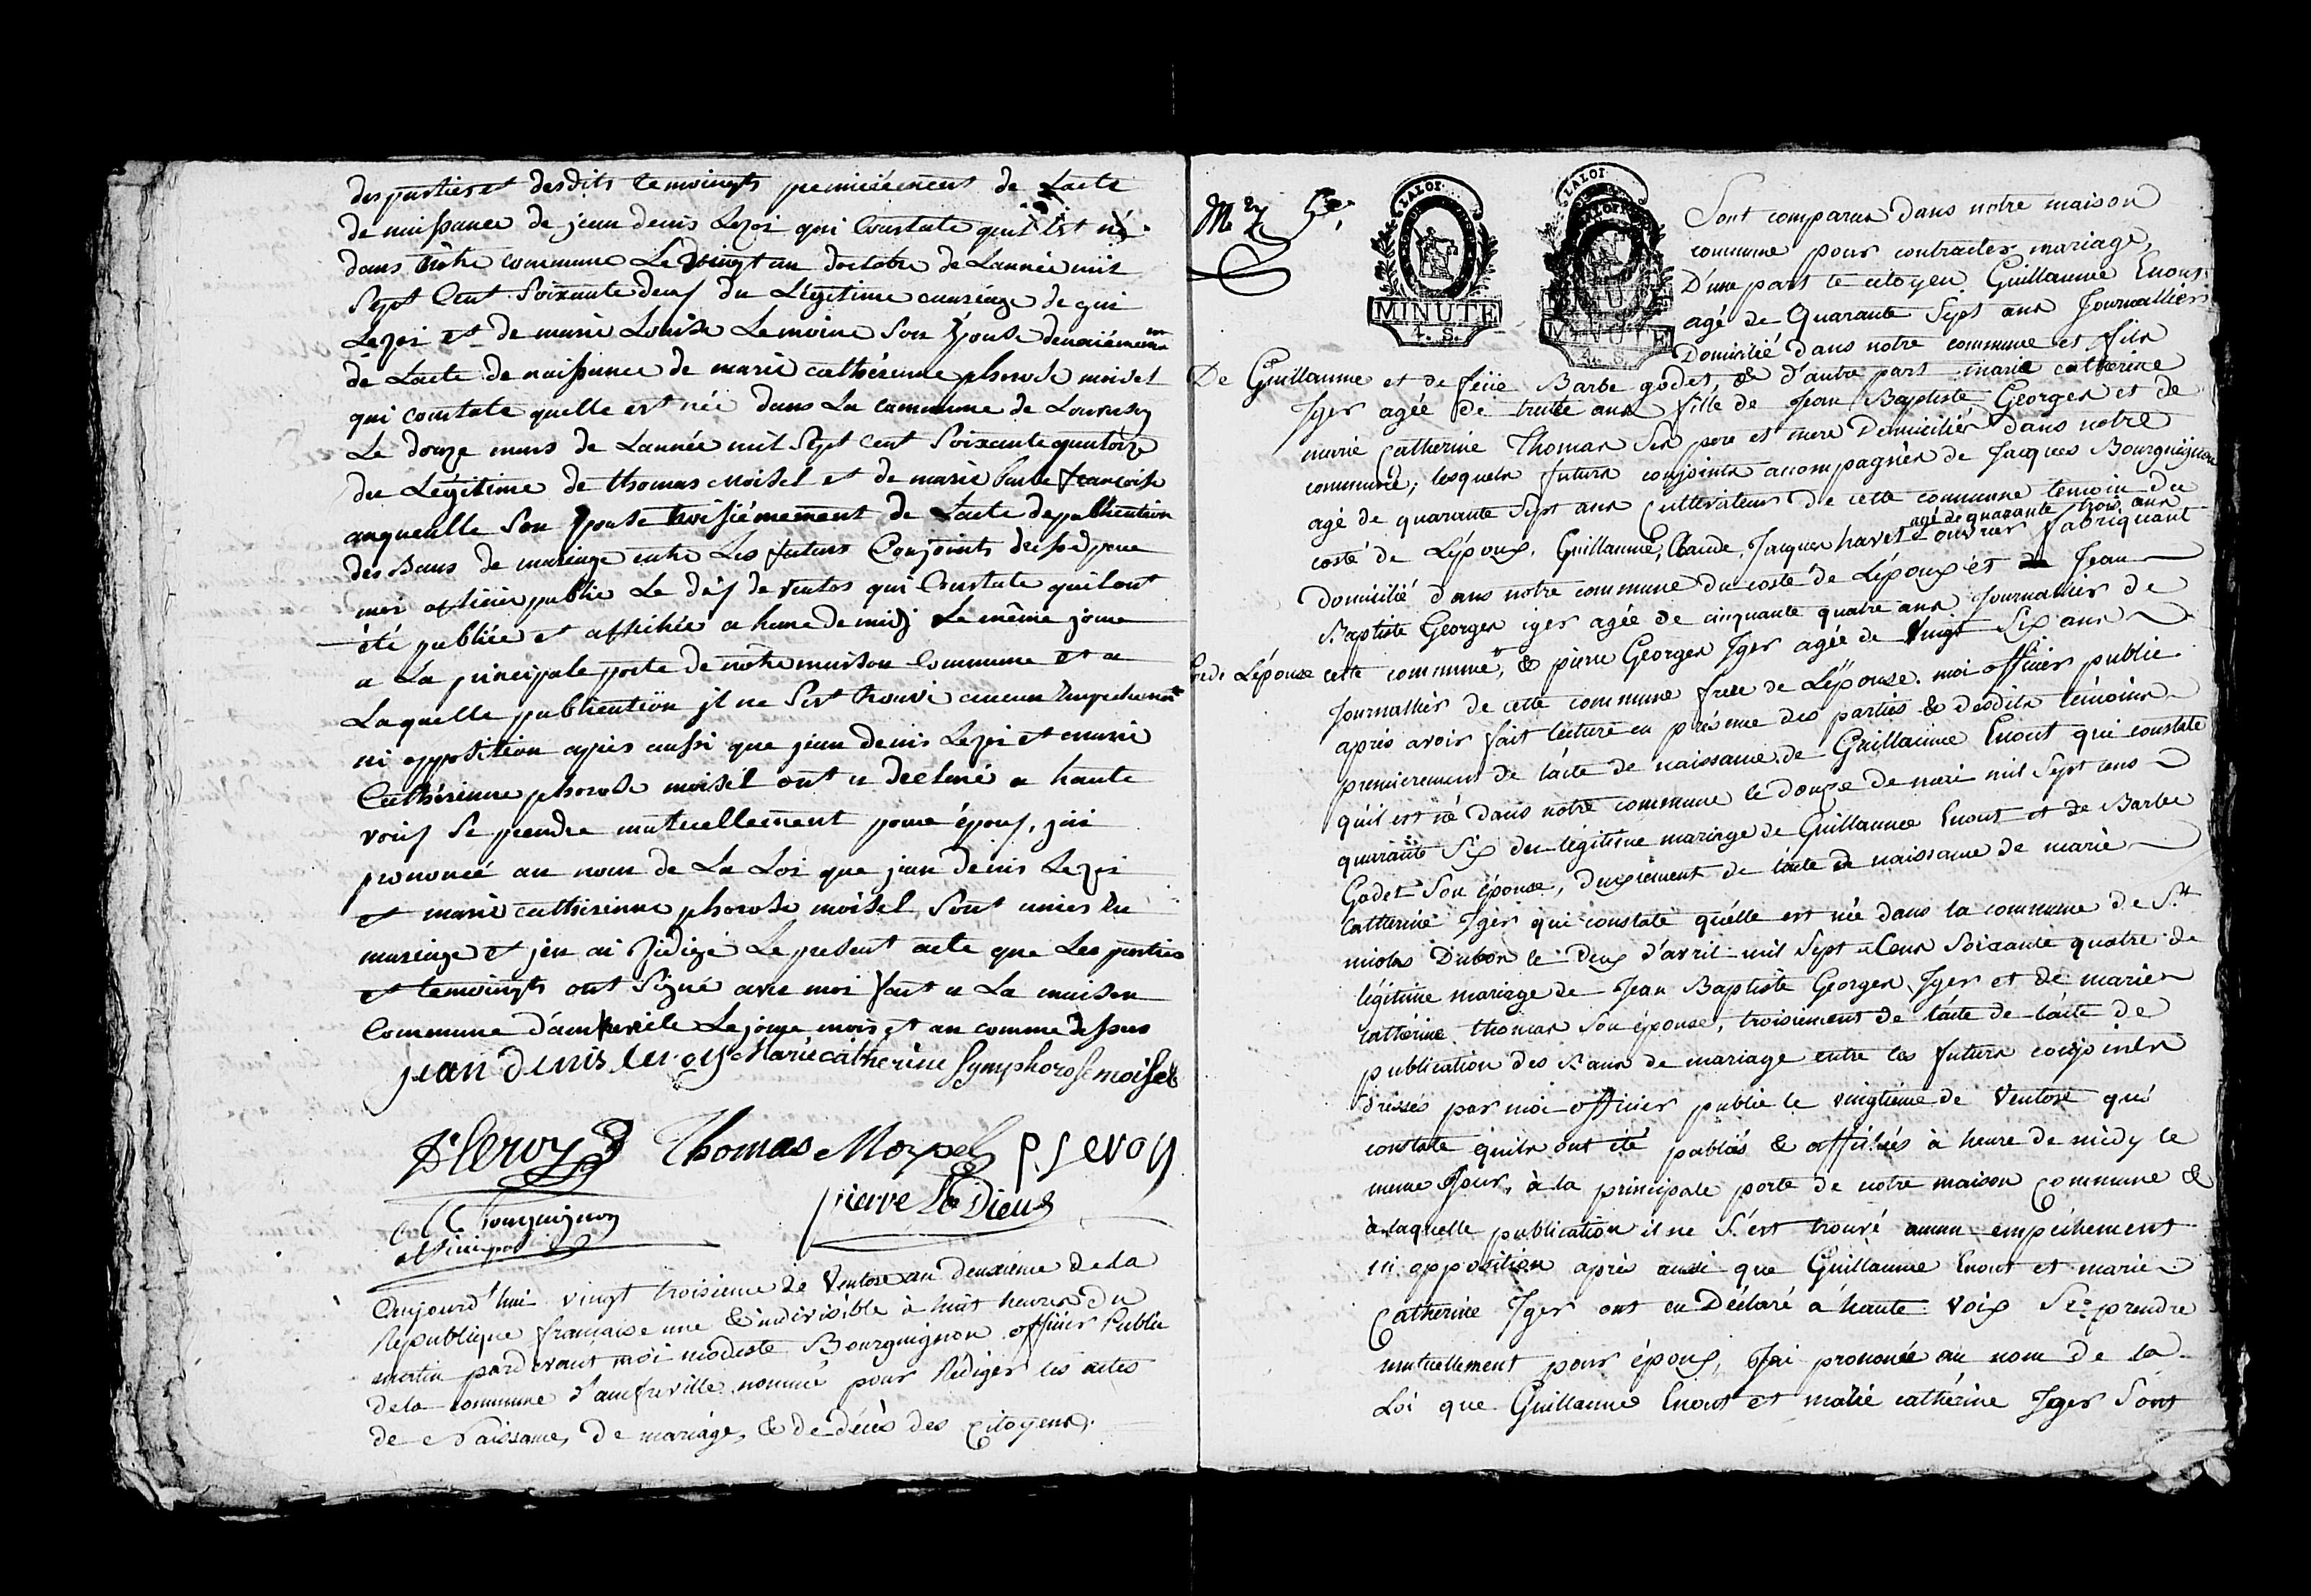 des parties et desdits temoingts premiérement de Lacte
de naissance de jean denis Leroi qui Constate quil Est né
dans nôtre commune Le vingt un doctobre de Lannée mil
Sept Cent Soixante deux du Légitime mariage de gui
Leroi et de marie Louise Lemoine Son Epouse deuxiémement
de Lacte de naissance de marie cathérienne phorose moisel
qui constate quelle est née dans La commune de
Le douze mars de Lannée mil Sept Cent Soixante quatorze
du Légitime de thomas moisel et de marie barbe francoise
anquetille Son Epouse troisiémement de Lacte depublication
des Bans de mariage entre Les futurs Conjoints dressé par
moi officier public Le dix de ventos qui Constate quil ont
été publiée et affichée a heure de midj Le même joure
a La principale porte de notre maison Commune et a
Laquelle publication jl ne Sest trouvé aucun Empechemt
ni opposition apprès aussi que jean denis Leroi et marie
Cathérienne phorose moisel ont a declaré a haute
voix Se prendre mutuellement pour époux, jai
prononcé au nom de La Loi que jean denis Leroi
et marie cathérienne phorose moisel Sont unies En
mariage et jen ai Rédigé Le present acte que Les parties
et temoingts ont Signé avec moi fait a La maison
Commune d'amfreville Lejour mois et an comme dessus
jean denis leroy Marie catherine Symphorose moisel
Leroy Thomas Moysel P. Leroy
Bourguignon pierre Le Dieu
officier public
Aujourd'hui vingt troisieme de Ventose an deuxiéme de la
République française une & indivisible à huit heures du
matin pardevant moi modeste Bourguignon officier Public
dela commune d'amfreville nommé pour Rédiger les actes
de Naissance, De mariage, & de décès des Citoyens,
LA LOI
MINUTE
4. S.
LA LOI
MINUTE
4. S.
Sont comparus dans notre maison
commune pour contracter mariage,
D'une part le citoyen Guillaume Enout
agé de Quarante Sept ans Journallier
Domicilié dans notre commune et fils
De Guillaume et de feüe Barbe godet, & d'autre part marie catherine
Jger agée de trente ans fille de Jean Baptiste Georges et de
marie Catherine Thomas Ses pere et mere Domiciliés dans notre
commune; lesquels futurs conjoints accompagnés de Jacques Bourguignon
agé de quarante Sept ans Cultivateur de cette commune temoin du
agé de quarante trois ans
costé de L'époux, Guillaume, Claude, Jacques havet ouvrier fabriquant
Domicilié dans notre commune du costé de L'époux et Jean
Baptiste Georges iger agée de cinquante quatre ans Journalier de
de L'épouse cette commune, & pierre Georges Jger agée de Vingt Six ans
Journallier de cette commune frere de L'épouse. moi officier public
après avoir fait lecture en présence des parties & desdits témoins
premierement de l'acte de naissance de Guillaume Enout qui constate
qu'il est né dans notre commune le douze de mai mil Sept cens
quarante Six du légitime mariage de Guillaume Enout et de Barbe
Godet Son épouse, deuxiément de l'acte de naissance de marie
Catherine Jger qui constate qu'elle est née dans la commune de St.
nicolas Dubôn le deux d'avril mil Sept Cens Soixante quatre de
légitime mariage de Jean Baptiste Georges Jger et de marie
catherine thomas Son épouse, troisiément de l'acte de l'acte de
publication des Bans de mariage entre les futurs conjoints
dressés par moi officier public le vingtième de Ventose qui
constate qu'ils ont été publiés & affichés à heure de midy le
meme Jour, à la principale porte de notre maison Commune &
à laquelle publication il ne S'est trouvé aucun empêchement
ni opposition après aussi que Guillaume Enout et marie
Catherine Jger ont eu Déclaré à haute voix Se prendre
mutuellement pour époux, J'ai prononcée au nom de la
Loi que Guillaume Enout et marie catherine Jger Sont